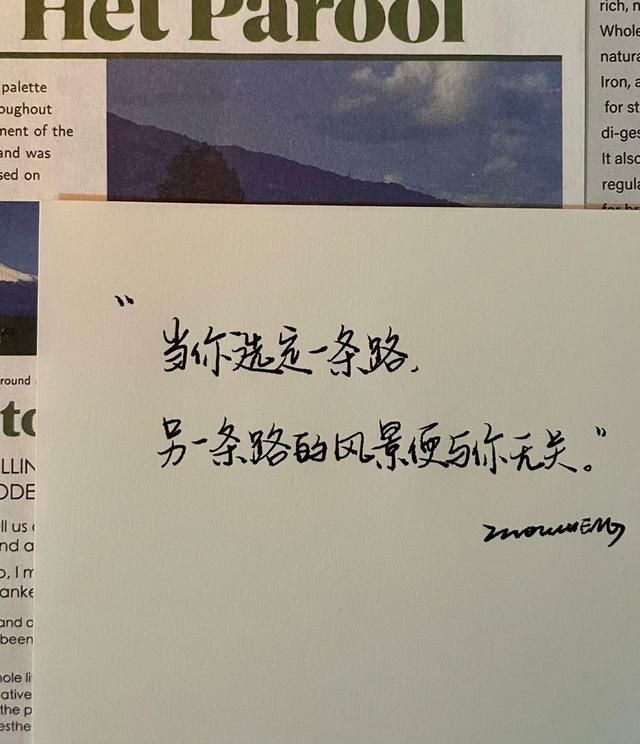 Het Parool
palette
oughout
ment of the
and was
sed on
rich, n
Whole
natura
Iron, a
for st
di-ges
It also
regula
round
to
LLIN
ODE
ll us
nd a
o, I m
anke
and c
been
nole li
ative
the p
esthe
“
当你选定一条路,
另一条路的风景便与你无关。”